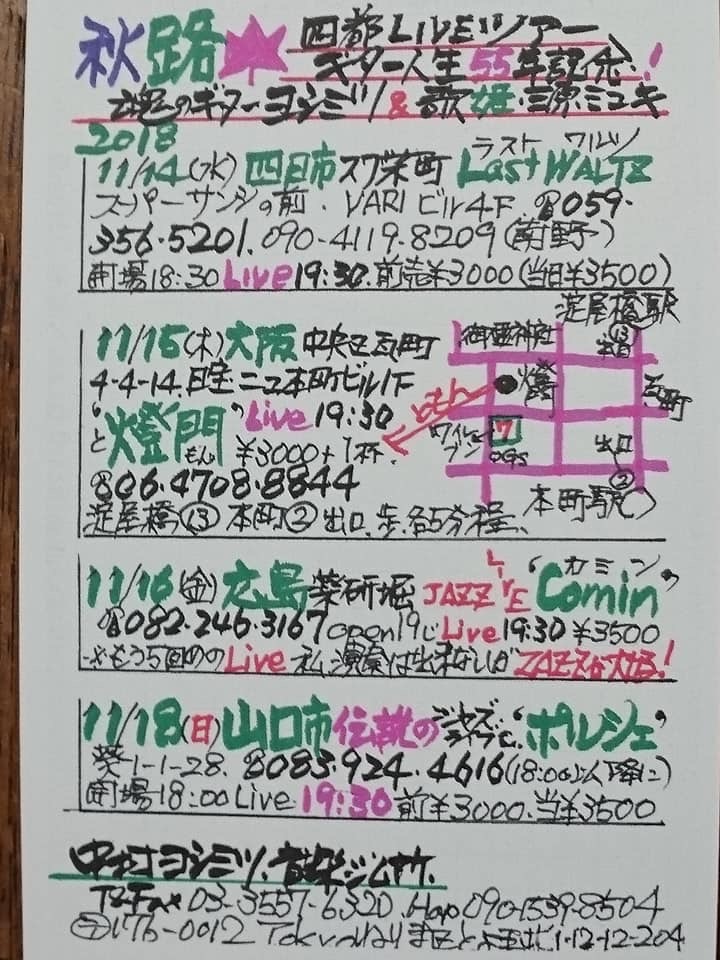 秋路
四都LIVEツアー
ギター人生55年記念!
魂のギターヨシミツ&歌姫・三原ミユキ
2018
11/14(水) 四日市スワ栄町 Last WALTZ
ラスト ワルツ
スーパーサンシの前、VARIビル4F ☎059・
356・5201. 090-4119・8209(前野)
開場18:30 Live 19:30. 前売¥3000(当日¥3500)
11/15(木)大阪 中央区瓦町
4-4-14.日宝ニュー本町ビル1F
"と燈門" Live 19:30
もん ¥3000+1杯.
☎06・4708・8844
淀屋橋⑬ 本町② 出口、歩、各5分程、
淀屋橋駅
⑬
御霊神社
燈門
ともん
瓦町
7
OGS
出口
②
本町駅
11/16(金)広島 薬研堀 JAZZ LIVE "Comin"
カミン
☎082・246・3167 open19じ Live 19:30 ¥3500
もう5回めのLive 私、演奏は出来ないが JAZZが大好!
11/18(日)山口市 伝説のジャズライブと"ポルシェ"
葵1-1-28. ☎083・924・4616(18:00以降に)
開場18:00 Live 19:30 前¥3000. 当¥3500
中村ヨシミツ音楽ジムサ.
T&Fax 03-3557-6320. 090-1539-8504
〒176-0012 Tokyoねりま区とよ玉北1-12-12-204